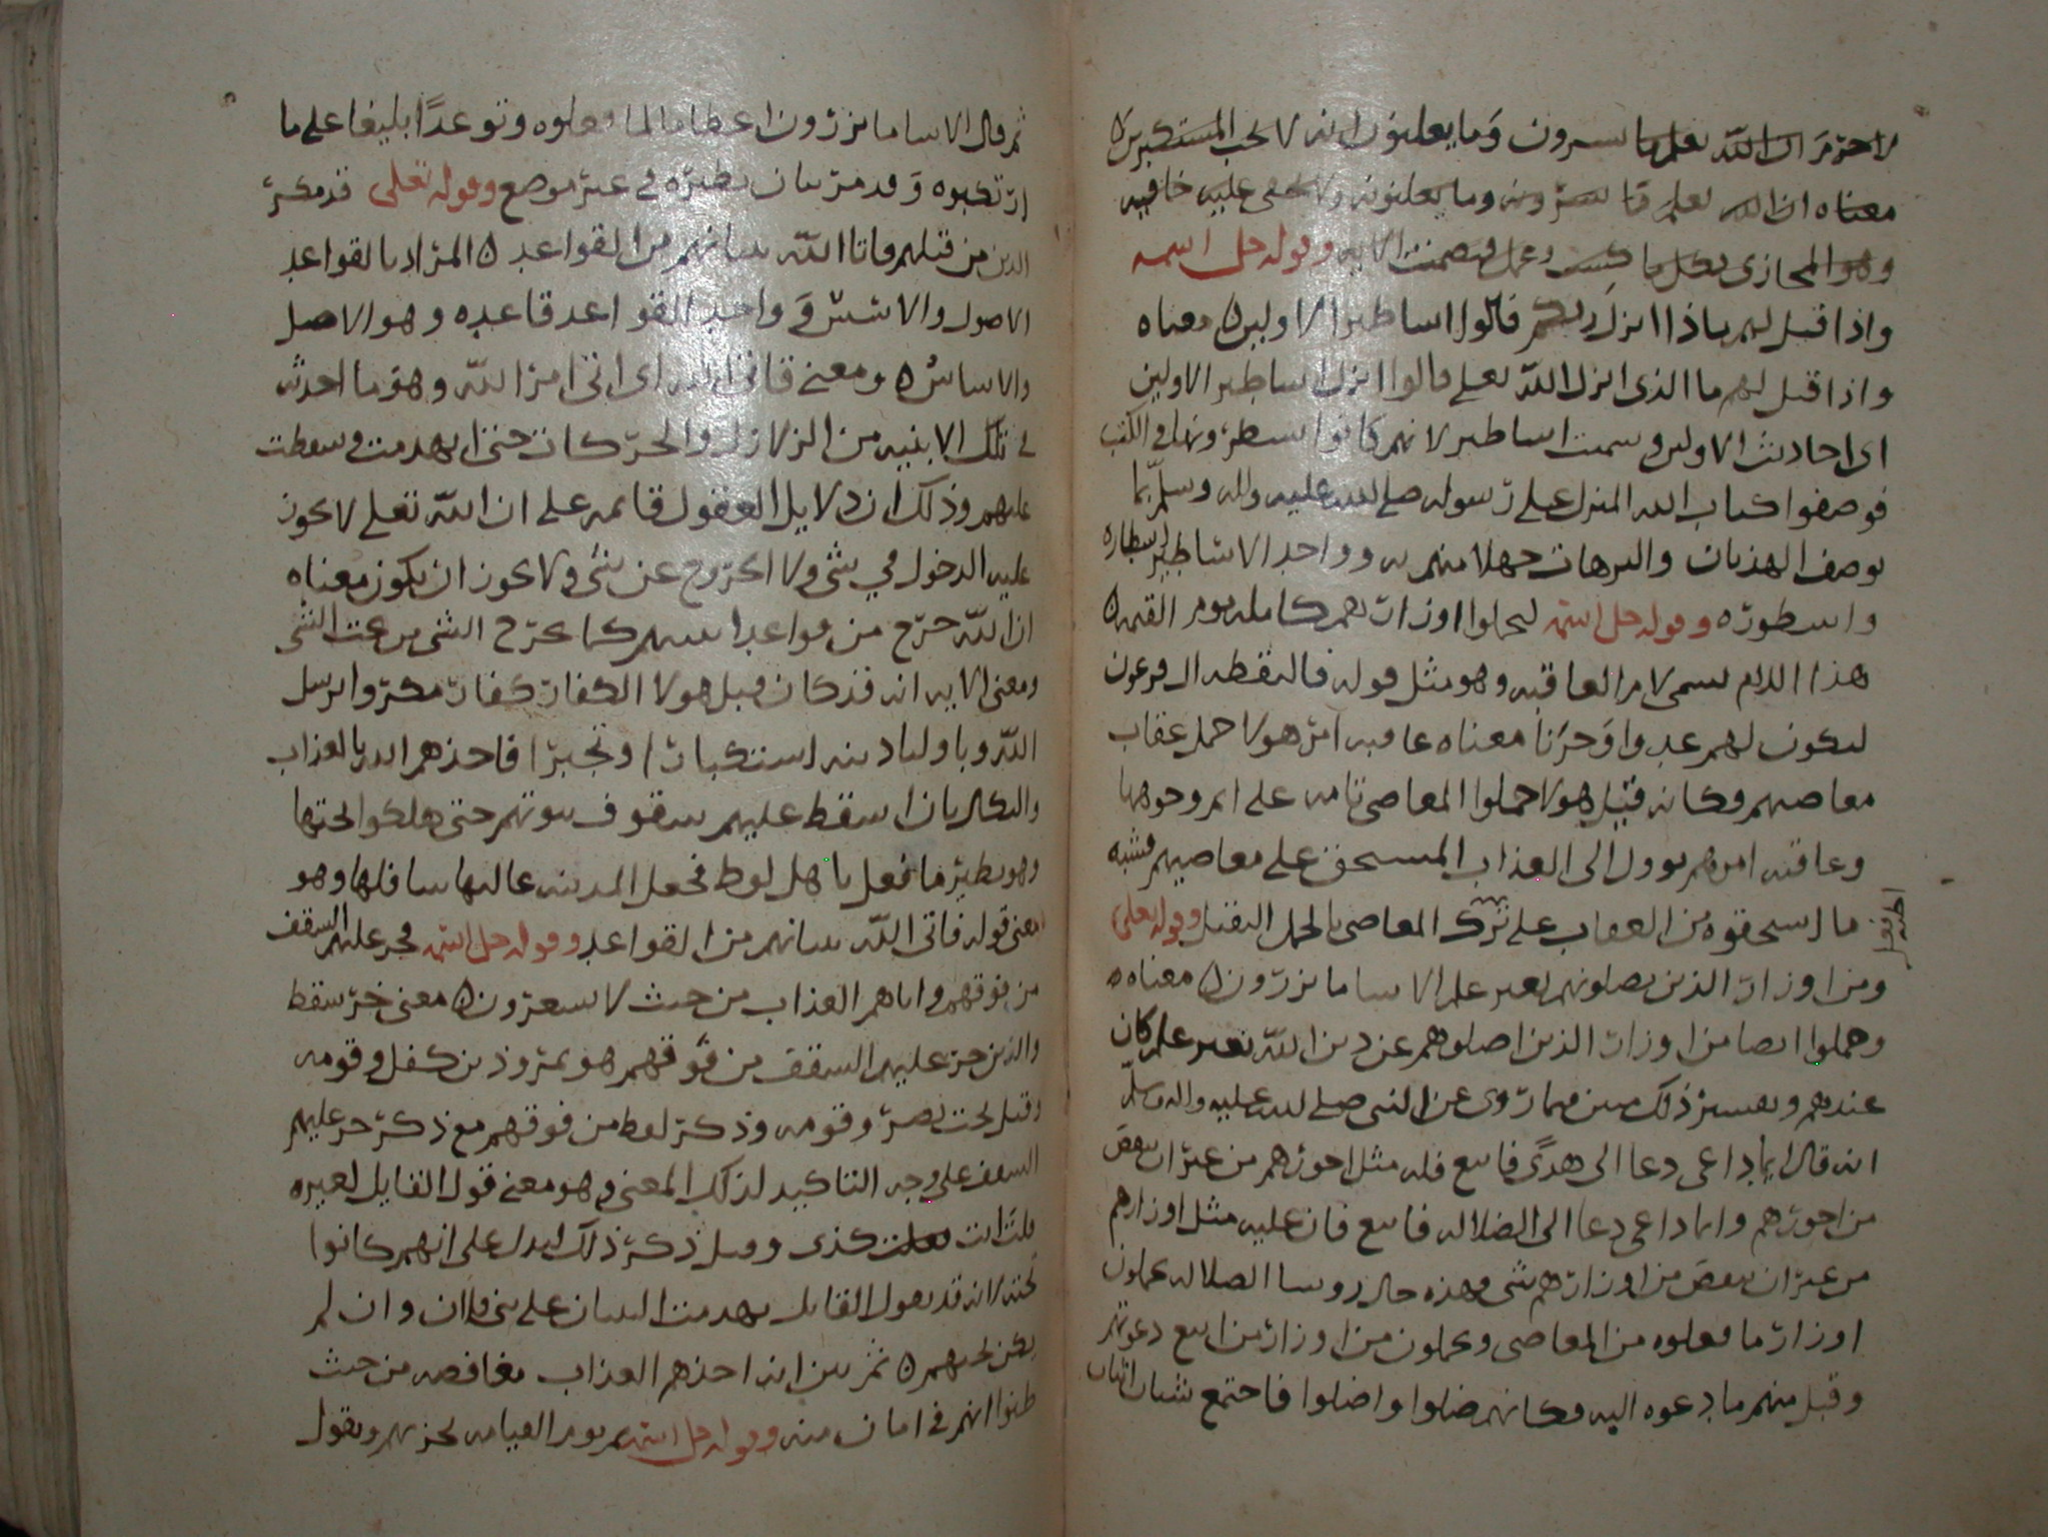 لا جرم ان الله يعلم ما يسرون وما يعلنون انه لا يحب المستكبرين
معناه ان الله يعلم ما يسرونه وما يعلنونه ولا يخفى عليه خافيه
وهو المجازى بكل ما كسب وعمل فتضمنت الايه وقوله جل اسمه
واذا قيل لهم ماذا انزل ربكم قالوا اساطير الاولين معناه
واذا قيل لهم ما الذى انزل الله تعلى قالوا انزل اساطير الاولين
اى احاديث الاولين وسميت اساطير لانهم كانوا يسطرونها فى الكتب
فوصفوا كتاب الله المنزل على رسوله صلى الله عليه واله وسلم بما
يوصف الهذيان والترهات جهلا منهم به وواحد الاساطير اسطاره
واسطوره وقوله جل اسمه ليحملوا اوزارهم كامله يوم القيمه
هذا اللام يسمى لام العاقبه وهو مثل قوله فالتقطه ال فرعون
ليكون لهم عدوا وحزنا معناه عاقبه امر هولا حمل عقاب
معاصيهم وكانه قيل هولا حملوا المعاصى تامه على اتم وجوهها
وعاقبه امرهم يوول الى العذاب المستحق على معاصيهم فشبه
ما استحقوه من العقاب على ترك المعاصى بالحمل الثقيل وقوله تعلى
ومن اوزار الذين يضلونهم بغير علم الا سا ما يزرون معناه
وحملوا ايضا من اوزار الذين اضلوهم عن دين الله بغير علم كان
عندهم وتفسير ذلك مبين فيما روى عن النبى صلى الله عليه واله وسلم
انه قال ايما داعى دعا الى هدى فاتبع فله مثل اجورهم من غير ان ينقص
من اجورهم وايما داعى دعا الى الضلاله فاتبع فان عليه مثل اوزارهم
من غير ان ينقص من اوزارهم شى وهذه حال روسا الضلاله يحملون
اوزار ما فعلوه من المعاصى ويحملون من اوزار من اتبع دعوتهم
وقبل منهم ما دعوه اليه فكانهم ضلوا واضلوا فاجتمع
ثم قال الا سا ما يزرون اعظاما لما فعلوه وتوعدا بليغا على ما
ارتكبوه وقد مر بيان نظيره فى غير موضع وقوله تعلى قد مكر
الذين من قبلهم فاتا الله بنيانهم من القواعد المراد بالقواعد
الاصول والاسس وواحد القواعد قاعده وهو الاصل
والاساس ومعنى فاتى الله اى اتى امر الله وهو ما احدث
فى تلك الابنيه من الزلازل والحركات حتى انهدمت وسقطت
عليهم وذلك ان دلايل العقول قايمه على ان الله تعلى لا يجوز
عليه الدخول في شى ولا الخروج عن شى ولا يجوز ان يكون معناه
ان الله خرج من قواعد بنيانهم كما يخرج الشى من تحت الشى
ومعنى الايه انه قد كان قبل هولا الكفار كفار مكروا برسل
الله وباوليا دينه استكبارا وتجبرا فاخذهم الله بالعذاب
والنكال بان اسقط عليهم سقوف بيوتهم حتى هلكوا تحتها
وهو نظير ما فعل باهل لوط فجعل المدينه عاليها سافلها وهو
معنى قوله فاتى الله بنيانهم من القواعد وقوله جل اسمه فخر عليهم السقف
من فوقهم واتاهم العذاب من حيث لا يشعرون معنى خر سقط
والذين خر عليهم السقف من فوقهم هو نمروذ بن كنعل وقومه
وقيل بخت نصر وقومه وذكر لفظ من فوقهم مع ذكر خر عليهم
السقف على وجه التاكيد لذلك المعنى وهو معنى قول القايل لغيره
قلت انت فعلت كذى وقيل ذكر ذلك ليدل على انهم كانوا
تحته لانه قد يقول القايل تهدمت البنيان على بنى فلان وان لم
يكن تحتهم ثم بين انه اخذهم العذاب مغافصه من حيث
ظنوا انهم فى امان منه وقوله جل اسمه ثم يوم القيامه يخزيهم ويقول